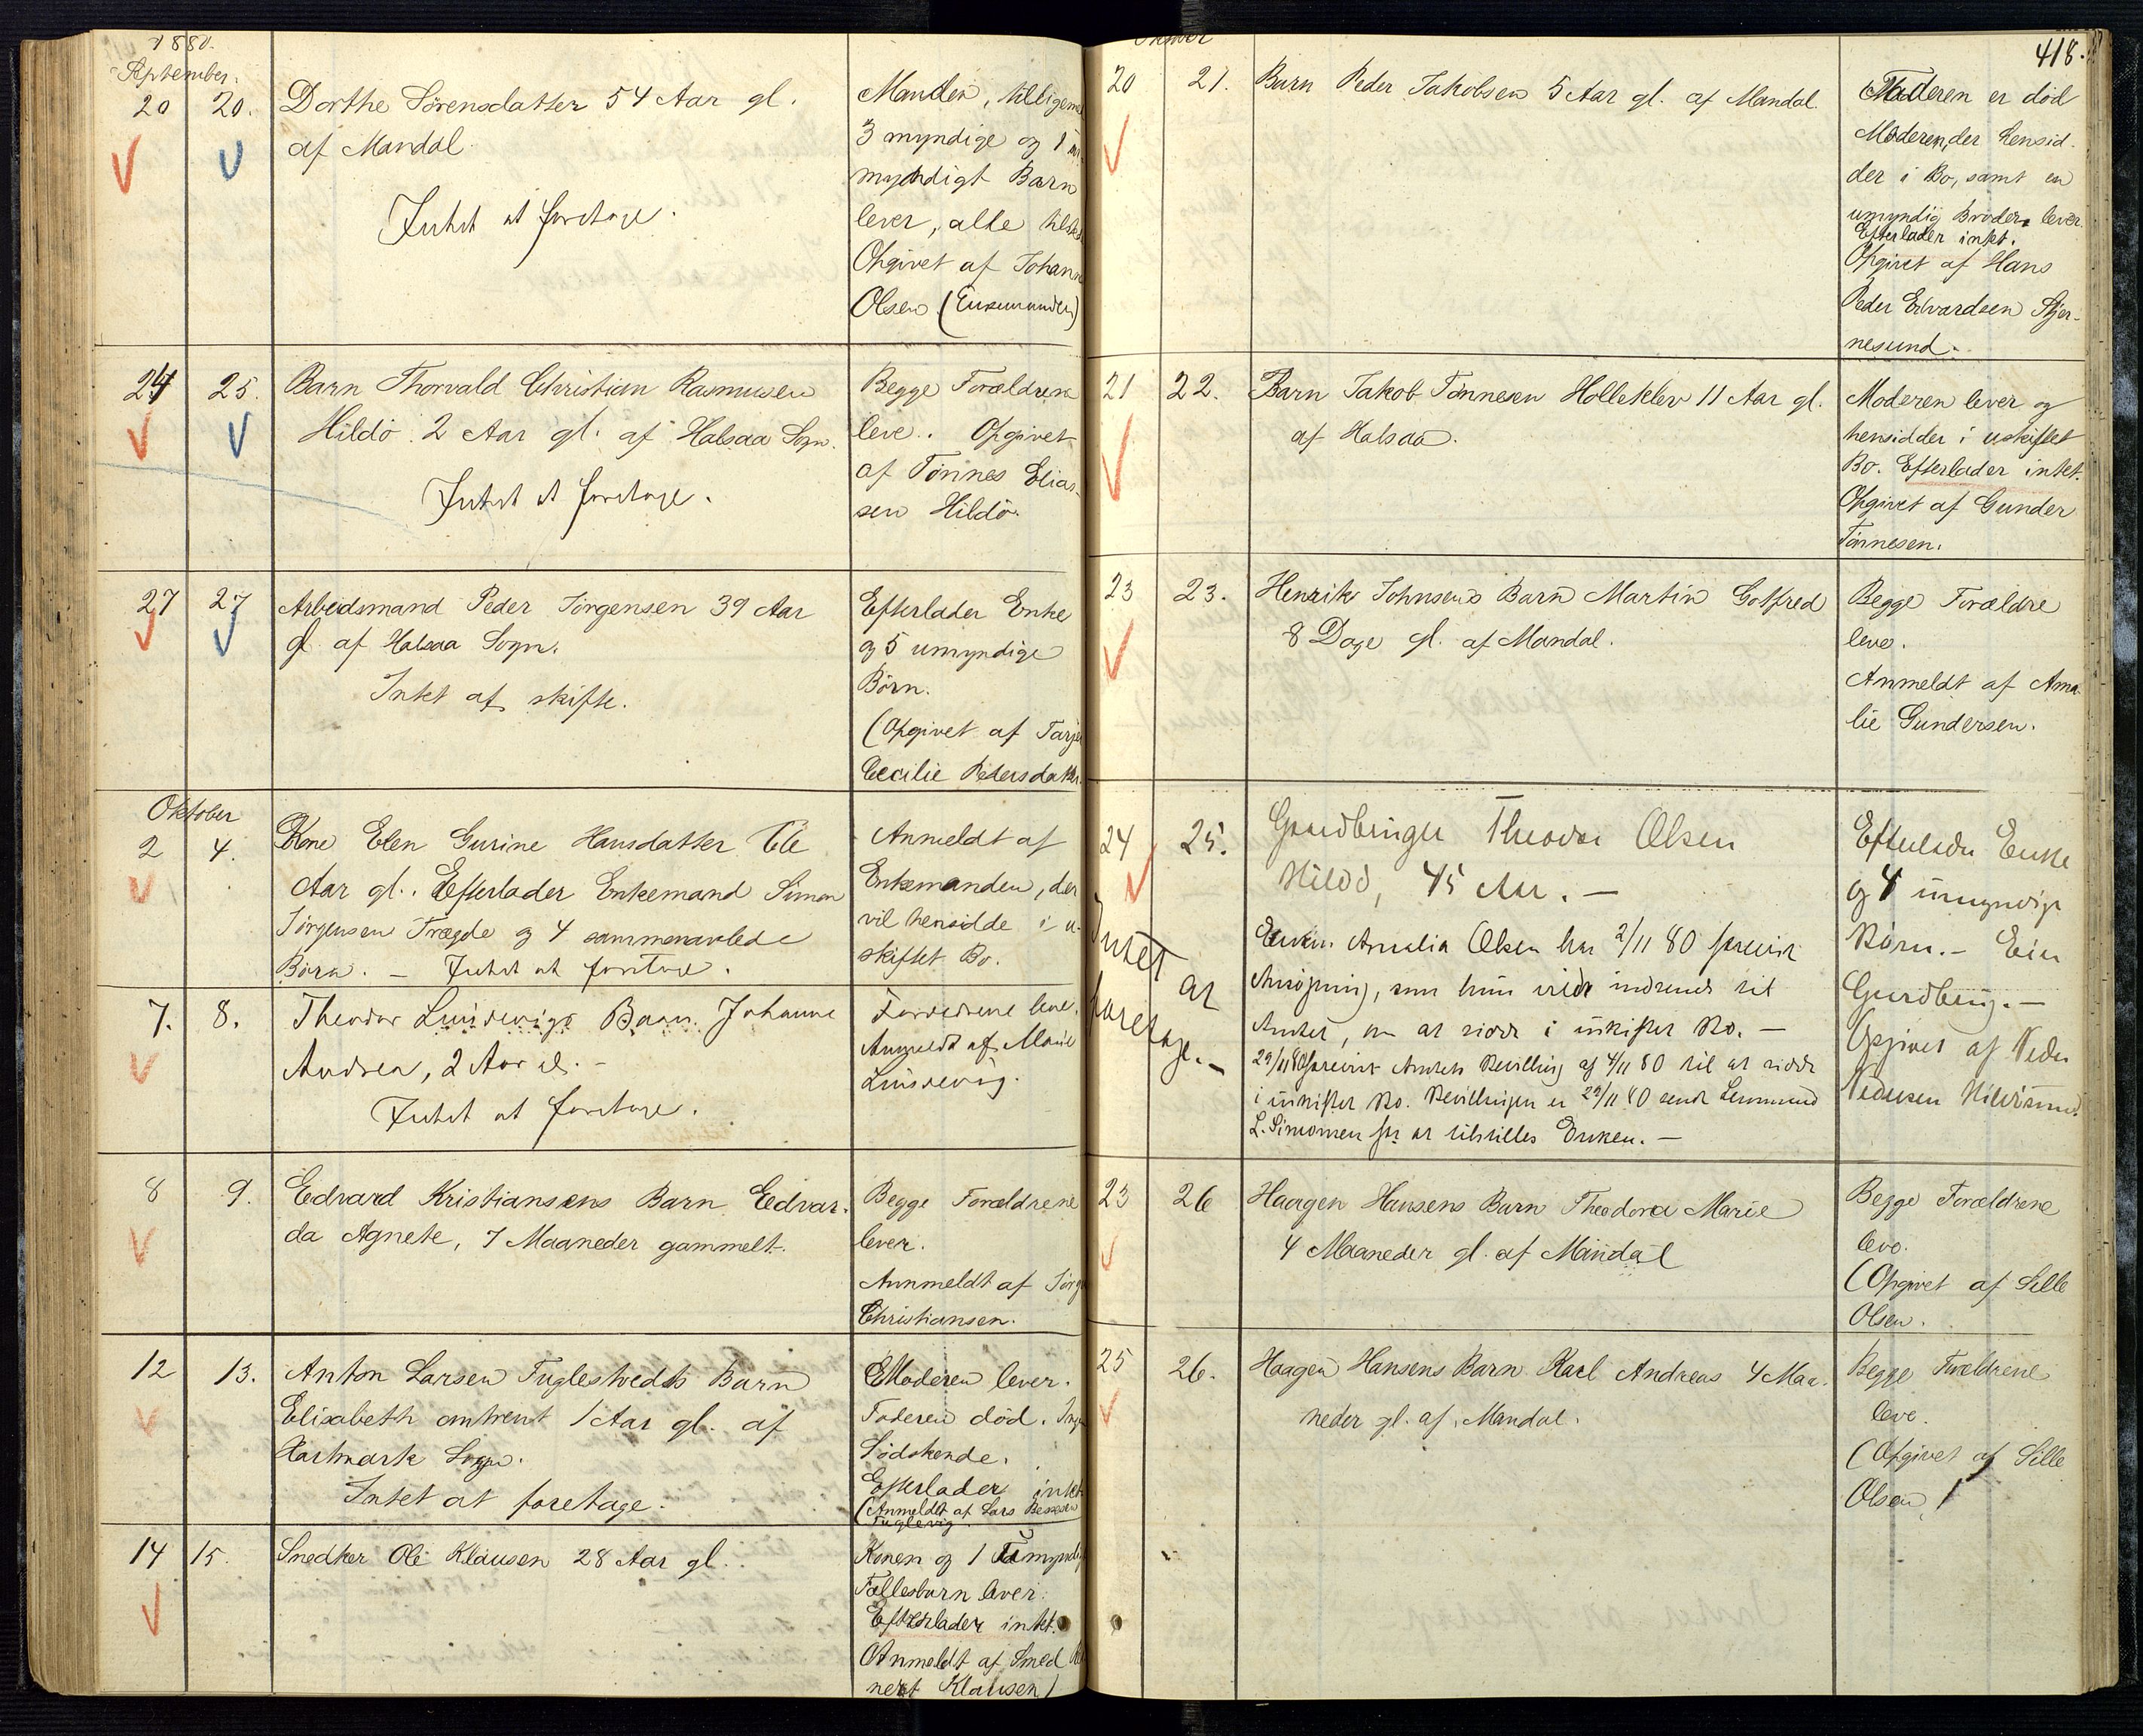 1880.
September.
20 20. Dorthe Sørensdatter 54 Aar gl.
af Mandal.
Intet at foretage.
Manden, tilligeme
3 myndige og 1 u
myndigt Barn
lever, alle
Opgivet af Johann
Olsen (Enkemanden)
24 25. Barn Thorvald Christian Rasmussen
Hildö 2 Aar gl. af Halsaa Sogn.
Intet at foretage.
Begge Forældrene
leve. Opgivet
af Tönnes Elias-
sen Hildö.
27 27 Arbeidsmand Peder Jörgensen 39 Aar
gl. af Halsaa Sogn.
Intet at skifte.
Efterlader Enke
og 5 umyndige
Börn.
(Opgivet af Tarje
Cecilie Pedersdatter.
Oktober
2 4. Kone Elen Gurine Hansdatter
Aar gl. Efterlader Enkemand Simon
Jörgensen Trægde og 4 sammenavlede
Börn. – Intet at foretage.
Anmeldt af
Enkemanden, der
vil hensidde i u-
skiftet Bo.
7. 8. Theodor Ludevigs Barn Johanne
Andrea, 2 Aar gl. –
Intet at foretage.
Forældrene leve.
Anmeldt af Marie
Ludevig.
8 9. Edvard Kristiansens Barn Edvar-
da Agnete, 7 Maaneder gammelt.
Begge Forældrene
lever.
Anmeldt af Jörg
Christiansen.
12 13. Anton Larsen Fuglestvedts Barn
Elisabeth omtrent 1 Aar gl. af
Hartmark Sogn.
Intet at foretage.
Moderen lever.
Faderen död. Ingen
Södskende.
Efterlader intet
(Anmeldt af Lars
Fuglevig
14 15. Snedker Ole Klausen 28 Aar gl.
Konen og 1 umyndig
Fællesbarn lever.
Efterlader intet.
(Anmeldt af Smed
nert Klausen)
Oktober
418.
20 21. Barn Peder Jakobsen 5 Aar gl. af Mandal.
Faderen er död
Moderen, der hensid-
der i Bo, samt en
umyndig Broder lever.
Efterlader intet.
Opgivet af Hans
Peder Edvardsen Skjer-
nesund.
21 22. Barn Jakob Tönnesen Holleklev 11 Aar gl.
af Halsaa.
Moderen lever og
hensidder i uskiftet
Bo. Efterlader intet.
Opgivet af Gunder
Tönnesen.
23 23. Henrik Johnsens Barn Martin Gotfred
8 Dage gl. af Mandal.
Begge Forældre
leve.
Anmeldt af Ama-
lie Gundersen.
24 25. Gaardbruger Theodor Olsen
Hildö, 45 Aar. –
Intet
at
foretage. –
Enken Amalia Olsen har 2/11 80 forevist
Ansögning, som hun vilde indsende til
Amtet, om at sidde i uskiftet Bo. –
29/11 80 forevist Amtets Bevilling af 4/11 80 til at sidde
i uskiftet Bo. Bevillingen er 29/11 80 sendt Lensmand
L. Simonsen for at tilstilles Enken. –
Efterlader Enke
og 4 umyndige
Börn. – Eier
Gaardbrug. –
Opgivet af Peder
Pedersen Hildösund.
23 26 Haagen Hansens Barn Theodora Marie
4 Maaneder gl. af Mandal
Begge Forældrene
leve.
(Opgivet af Sille
Olsen.
25 26. Haagen Hansens Barn Karl Andreas 4 Maa-
neder gl. af Mandal.
Begge Forældrene
leve.
(Opgivet af Sille
Olsen)